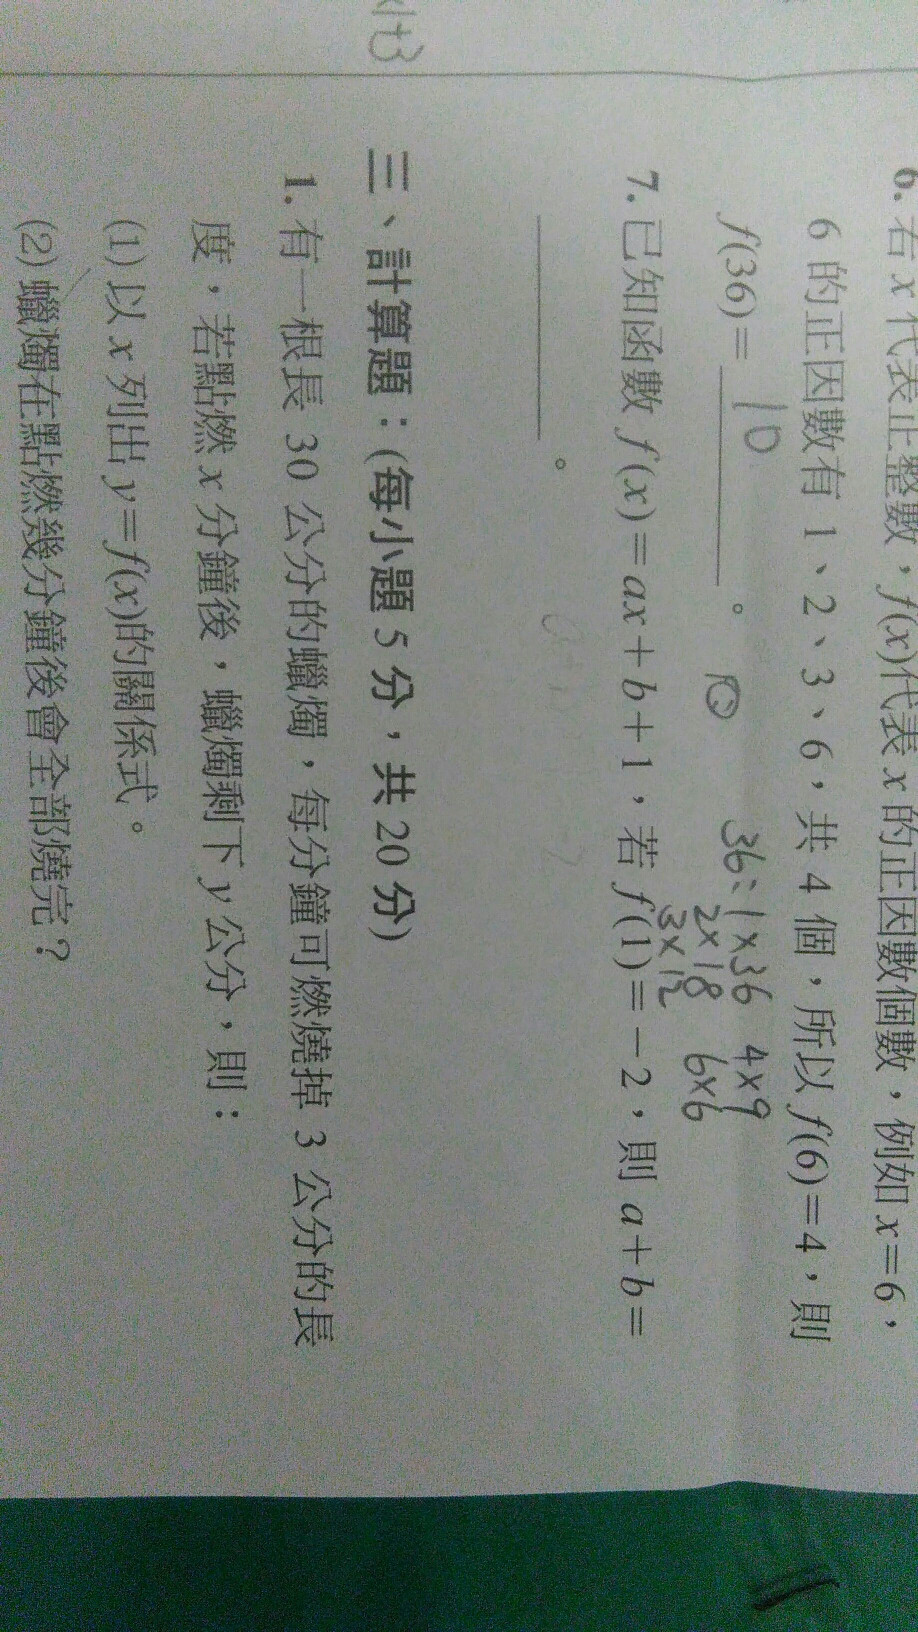 6. 若 x 代表正整數，f(x)代表 x 的正因數個數，例如 x=6，
6 的正因數有 1、2、3、6，共 4 個，所以 f(6)=4，則
f(36)= 10 。 36: 1×36 4×9
2×18 6×6
3×12
7. 已知函數 f(x)=ax+b+1，若 f(1)=−2，則 a+b=
。
三、計算題：(每小題 5 分，共 20 分)
1. 有一根長 30 公分的蠟燭，每分鐘可燃燒掉 3 公分的長
度，若點燃 x 分鐘後，蠟燭剩下 y 公分，則：
(1) 以 x 列出 y=f(x)的關係式。
(2) 蠟燭在點燃幾分鐘後會全部燒完？